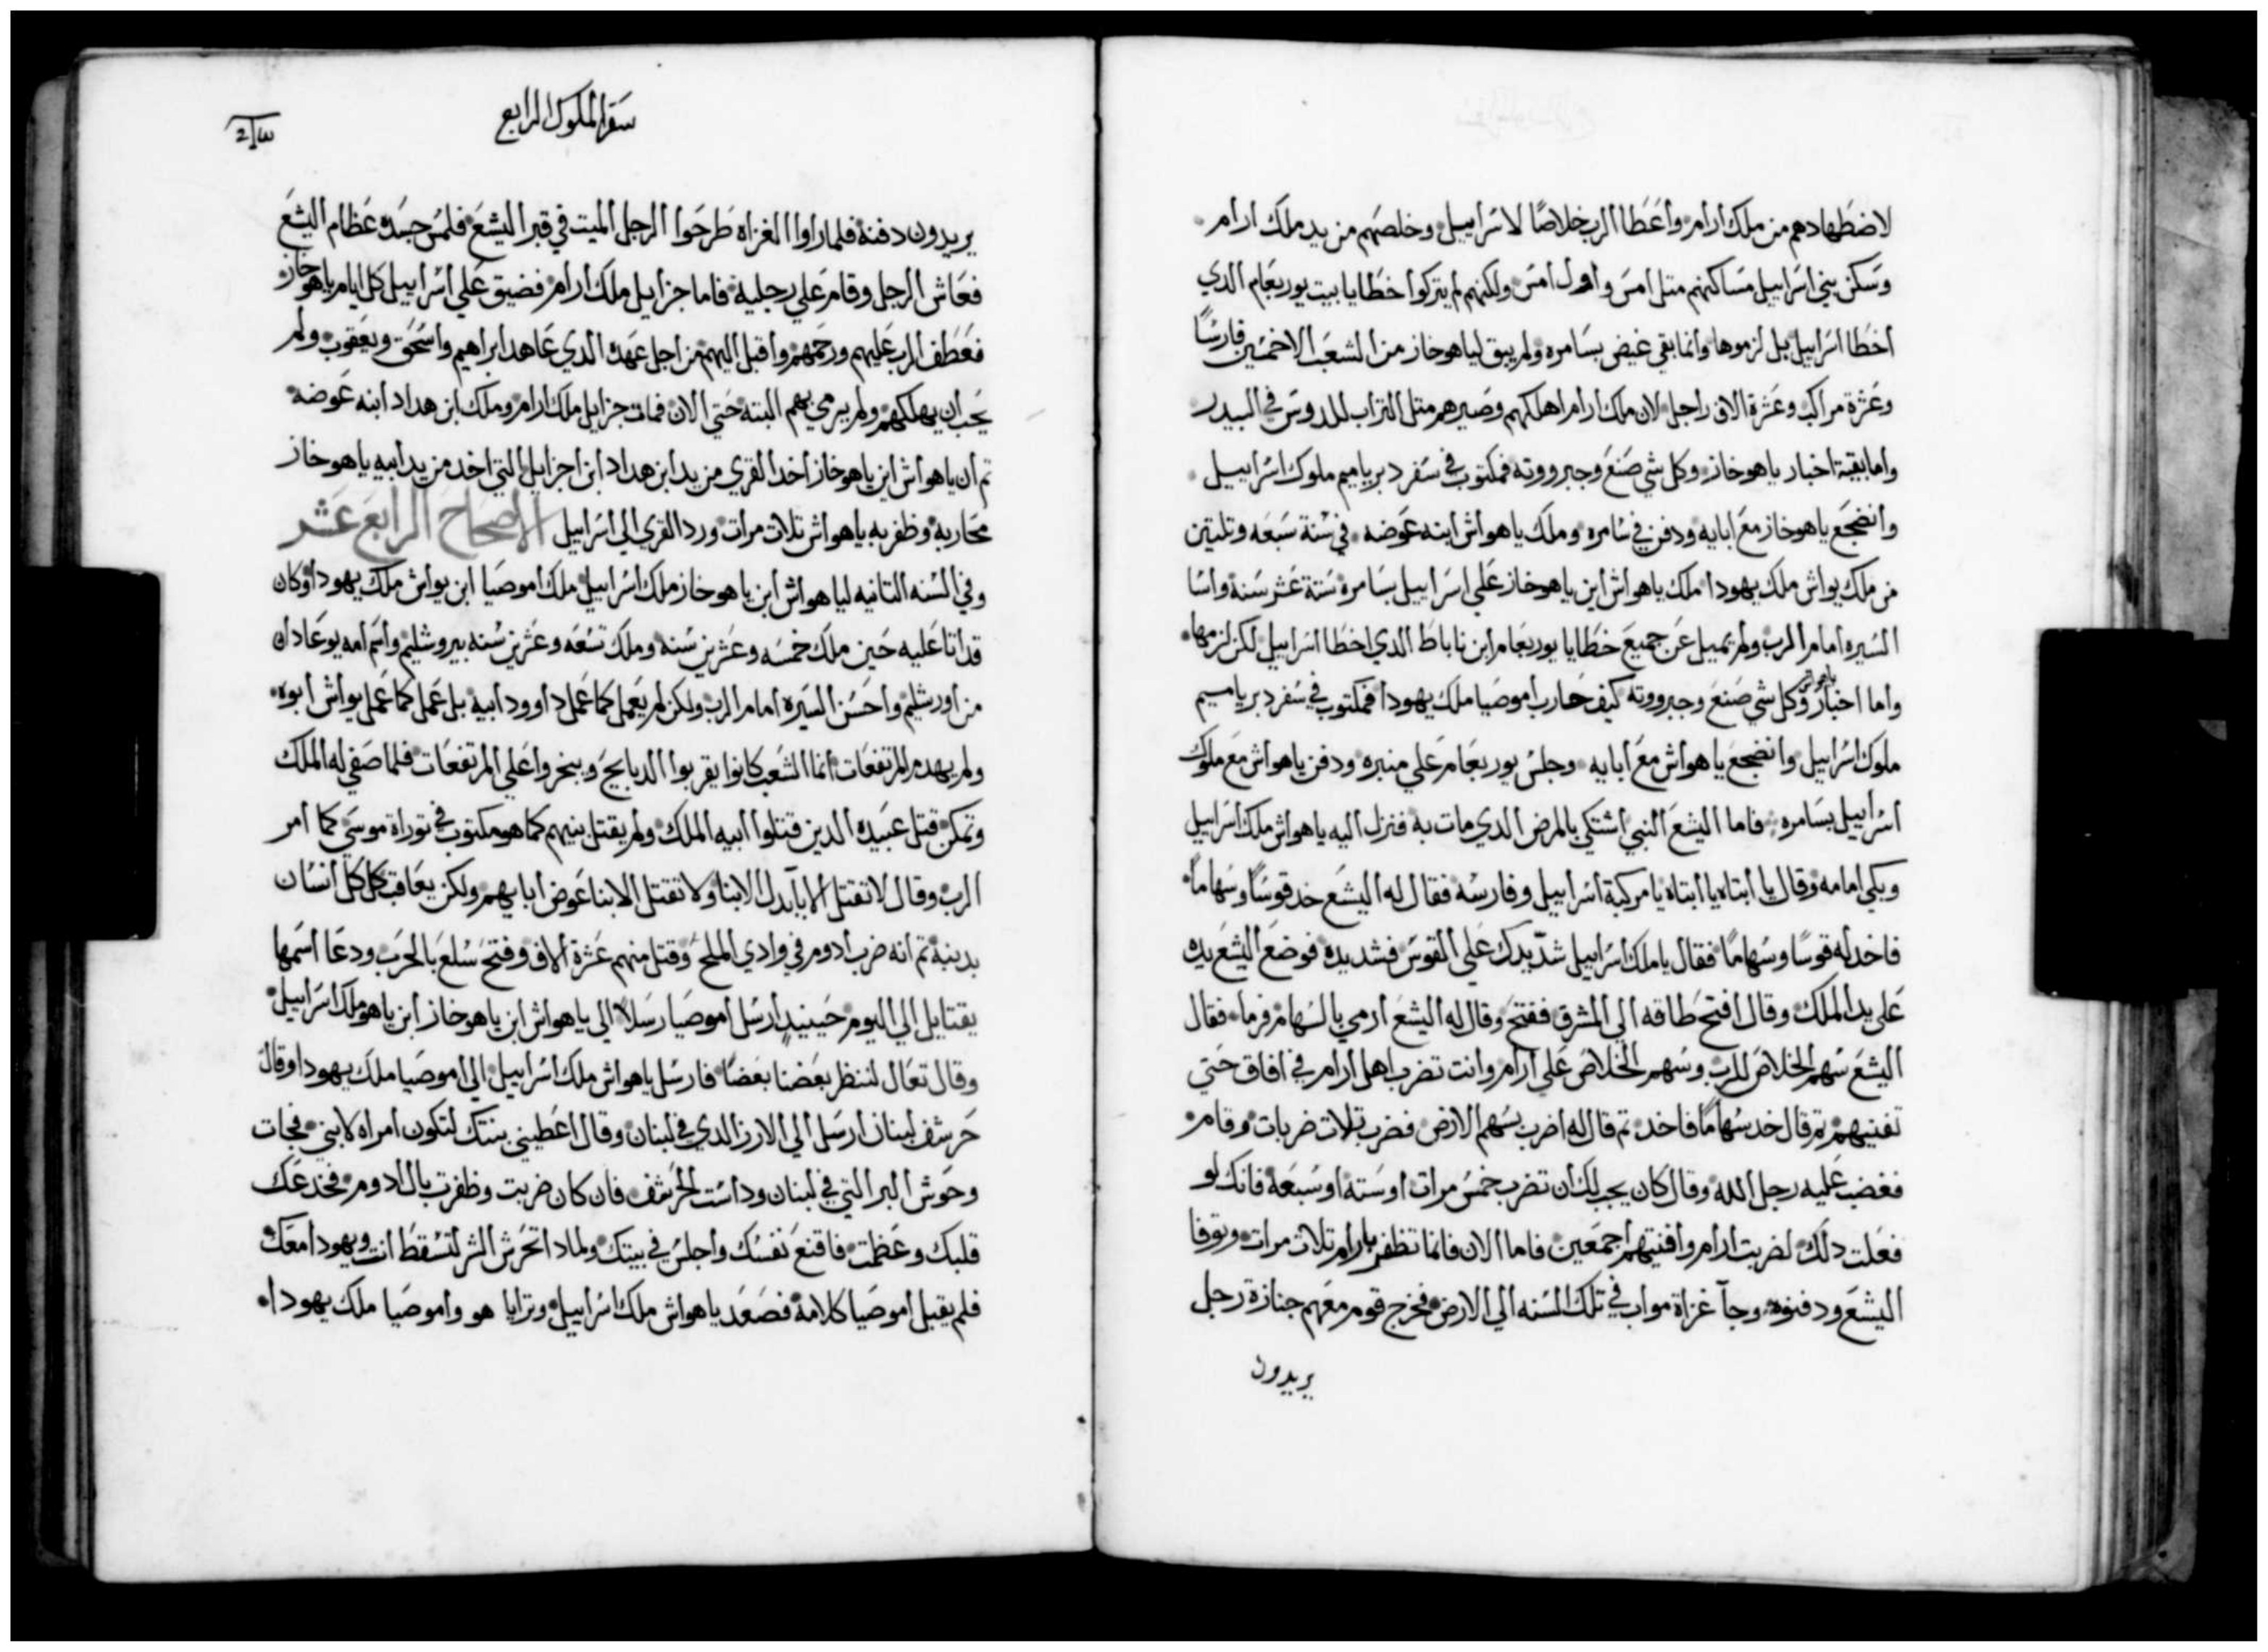 لاضطهادهم من ملك ارام واعطا الرب خلاصًا لاسراييل وخلصهم من يد ملك ارام
وسكن بني اسراييل مساكنهم متل امس واول امس ولكنهم لم يتركوا خطايا بيت يوربعام الدي
اخطا اسراييل بل لزموها وانما بقي غيض بسامره ولم يبق لياهوخاز من الشعب الا خمسين فارسًا
وعشرة مراكب وعشرة الاف راجل لان ملك ارام اهلكهم وصيرهم متل التراب للدوس في البيدر
واما بقية اخبار ياهوخاز وكل شي صنع وجبرووته فمكتوب في سفر دبرياميم ملوك اسراييل
وانضجع ياهوخاز مع ابايه ودفن في سامره وملك ياهواش ابنه عوضه في سنة سبعه وتلتين
من ملك يواش ملك يهودا ملك ياهواش ابن ياهوخاز علي اسراييل بسامره ستة عشر سنة واسا
السيره امام الرب ولم يميل عن جميع خطايا يوربعام ابن ناباط الدي اخطا اسراييل لكن لزمها
واما اخبار ياهواش وكل شي صنع وجبرووته كيف حارب اموصيا ملك يهودا فمكتوب في سفر دبرياميم
ملوك اسراييل وانضجع ياهواش مع ابايه وجلس يوربعام علي منبره ودفن ياهواش مع ملوك
اسراييل بسامره فاما اليشع النبي اشتكي بالمرض الدي مات به فنزل اليه ياهواش ملك اسراييل
وبكي امامه وقال يا ابتاه يا ابتاه يا مركبة اسراييل وفارسه فقال له اليشع خد قوسًا وسهامًا
فاخد له قوسًا وسهامًا فقال يا ملك اسراييل شدّ يدك علي القوس فشد يده فوضع اليشع يده
علي يد الملك وقال افتح طاقه الي المشرق ففتح وقال له اليشع ارمي بالسهام فرما فقال
اليشع سهم الخلاص للرب وسهم الخلاص علي ارام وانت تضرب اهل ارام في افاق حتي
تفنيهم تم قال خد سهامًا فاخد تم قال له اضرب بسهم الارض فضرب تلات ضربات وقام
فغضب عليه رجل الله وقال كان يجب لك ان تضرب خمس مرات او سته او سبعة فانك لو
فعلت دلك لضربت ارام وافنيتهم اجمعين فاما الان فانما تظفر بارام تلات مرات وتوفا
اليشع ودفنوه وجآ غزاة مواب في تلك السنه الي الارض فخرج قوم معهم جنازة رجل
يريدون
سفر الملوك الرابع
يريدون دفنه فلما راوا الغزاه طرحوا الرجل الميت في قبر اليشع فلمس جسده عظام اليشع
فعاش الرجل وقام علي رجليه فاما جزاييل ملك ارام فضيق علي اسراييل كل ايام ياهوخاز
فعطف الرب عليهم ورحمهم واقبل اليهم من اجل عهده الدي عاهد ابراهيم واسحق ويعقوب ولم
يحب ان يهلكهم ولم يرمي بهم البته حتي الان فمات جزاييل ملك ارام وملك ابن هداد ابنه عوضه
تم ان ياهواش ابن ياهوخاز اخد القري من يد ابن هداد ابن جزاييل التي اخد من يد ابيه ياهوخاز
محاربة وظفر به ياهواش تلات مرات ورد القري الي اسراييل الاصحاح الرابع عشر
وفي السنه التانيه لياهواش ابن ياهوخاز ملك اسراييل ملك اموصيا ابن يواش ملك يهودا وكان
قد اتا عليه حين ملك خمسه وعشرين سنه وملك تسعه وعشرين سنه بيروشليم واسم امه يوعادان
من اورشليم واحسن السيره امام الرب ولكن لم يعمل كما عمل داوود ابيه بل عمل كما عمل يواش ابوه
ولم يهدم المرتفعات انما الشعب كانوا يقربوا الدبايح ويبخروا علي المرتفعات فلما صفي له الملك
وتمكن قتل عبيده الدين قتلوا ابيه الملك ولم يقتل بنيهم كما هو مكتوب في توراة موسي كما امر
الرب وقال لا تقتل الابآ بدل الابنا ولا تقتل الابنا عوض ابايهم ولكن يعاقب كل كل انسان
بدينه تم انه ضرب ادوم في وادي الملح وقتل منهم عشرة الاف وفتح سلع بالحرب ودعا اسمها
يقتاييل الي اليوم حينيدٍ ارسل اموصيا رسلاً الي ياهواش ابن ياهوخاز ابن ياهو ملك اسراييل
وقال تعال لننظر بعضنا بعضًا فارسل ياهواش ملك اسراييل الي اموصيا ملك يهودا وقال
حرشف لبنان ارسل الي الارز الدي في لبنان وقال اعطيني بنتك لتكون امراه لابني فجات
وحوش البر التي في لبنان وداست الحرشف فان كان ضربت وظفرت بالادوم فخدعك
قلبك وعظمت فاقنع نفسك واجلس في بيتك ولمادا تحرش الشر لتسقط انت ويهودا معك
فلم يقبل اموصيا كلامه فصعد ياهواش ملك اسراييل وترايا هو واموصيا ملك يهودا